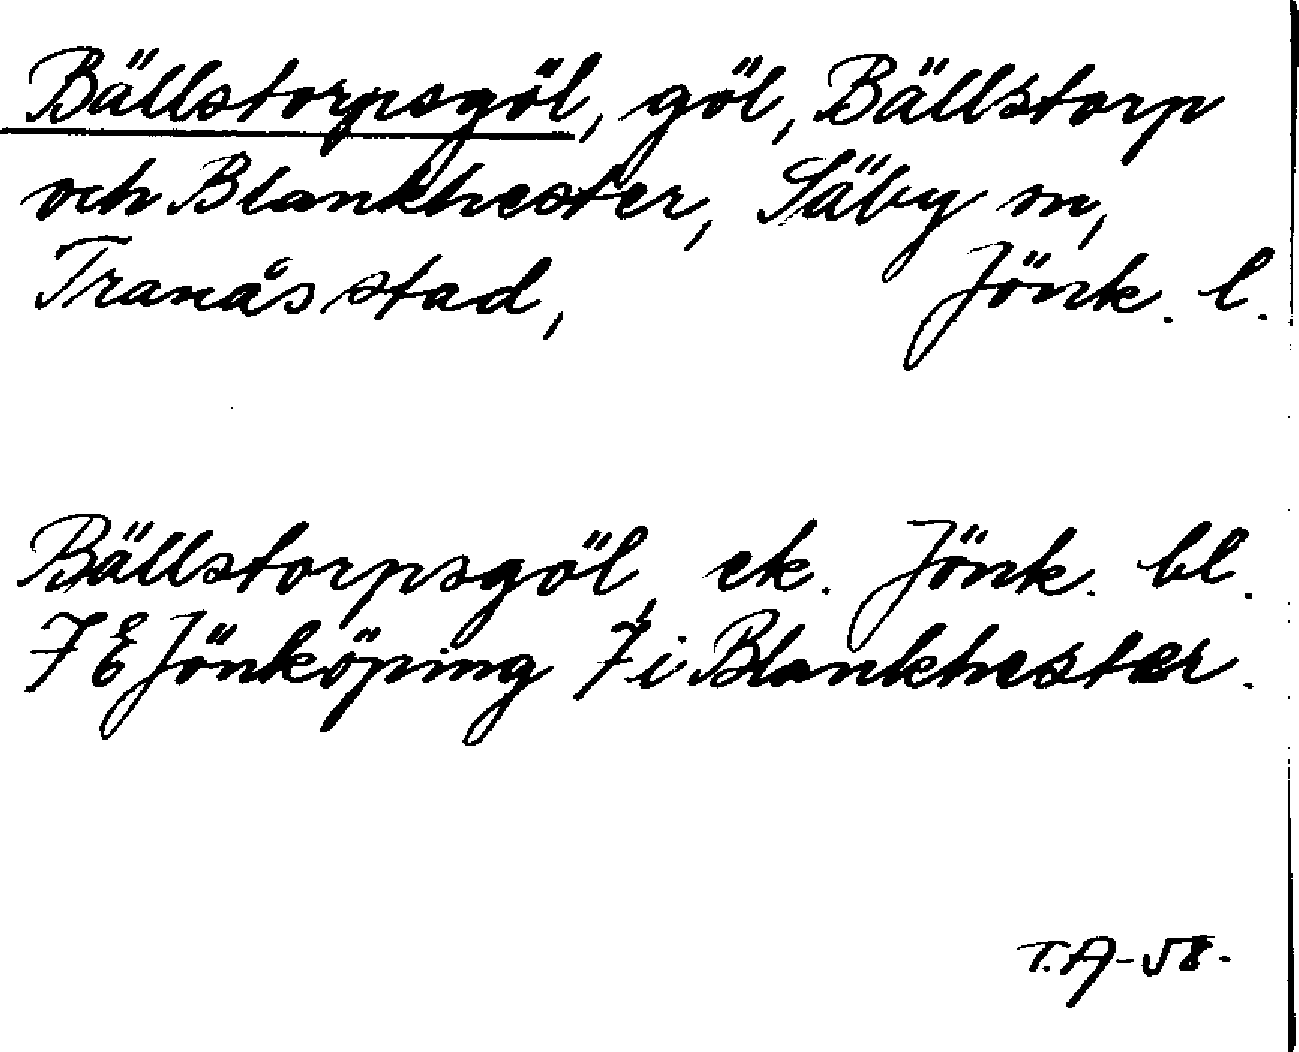 Bällstorpsgöl, göl, Bällstorp
och Blankhester, Säby sn,
Tranås stad, Jönk. l.
Bällstorpsgöl, ek. Jönk. bl.
7 E Jönköping 7 i Blankhester.
T.A-58.